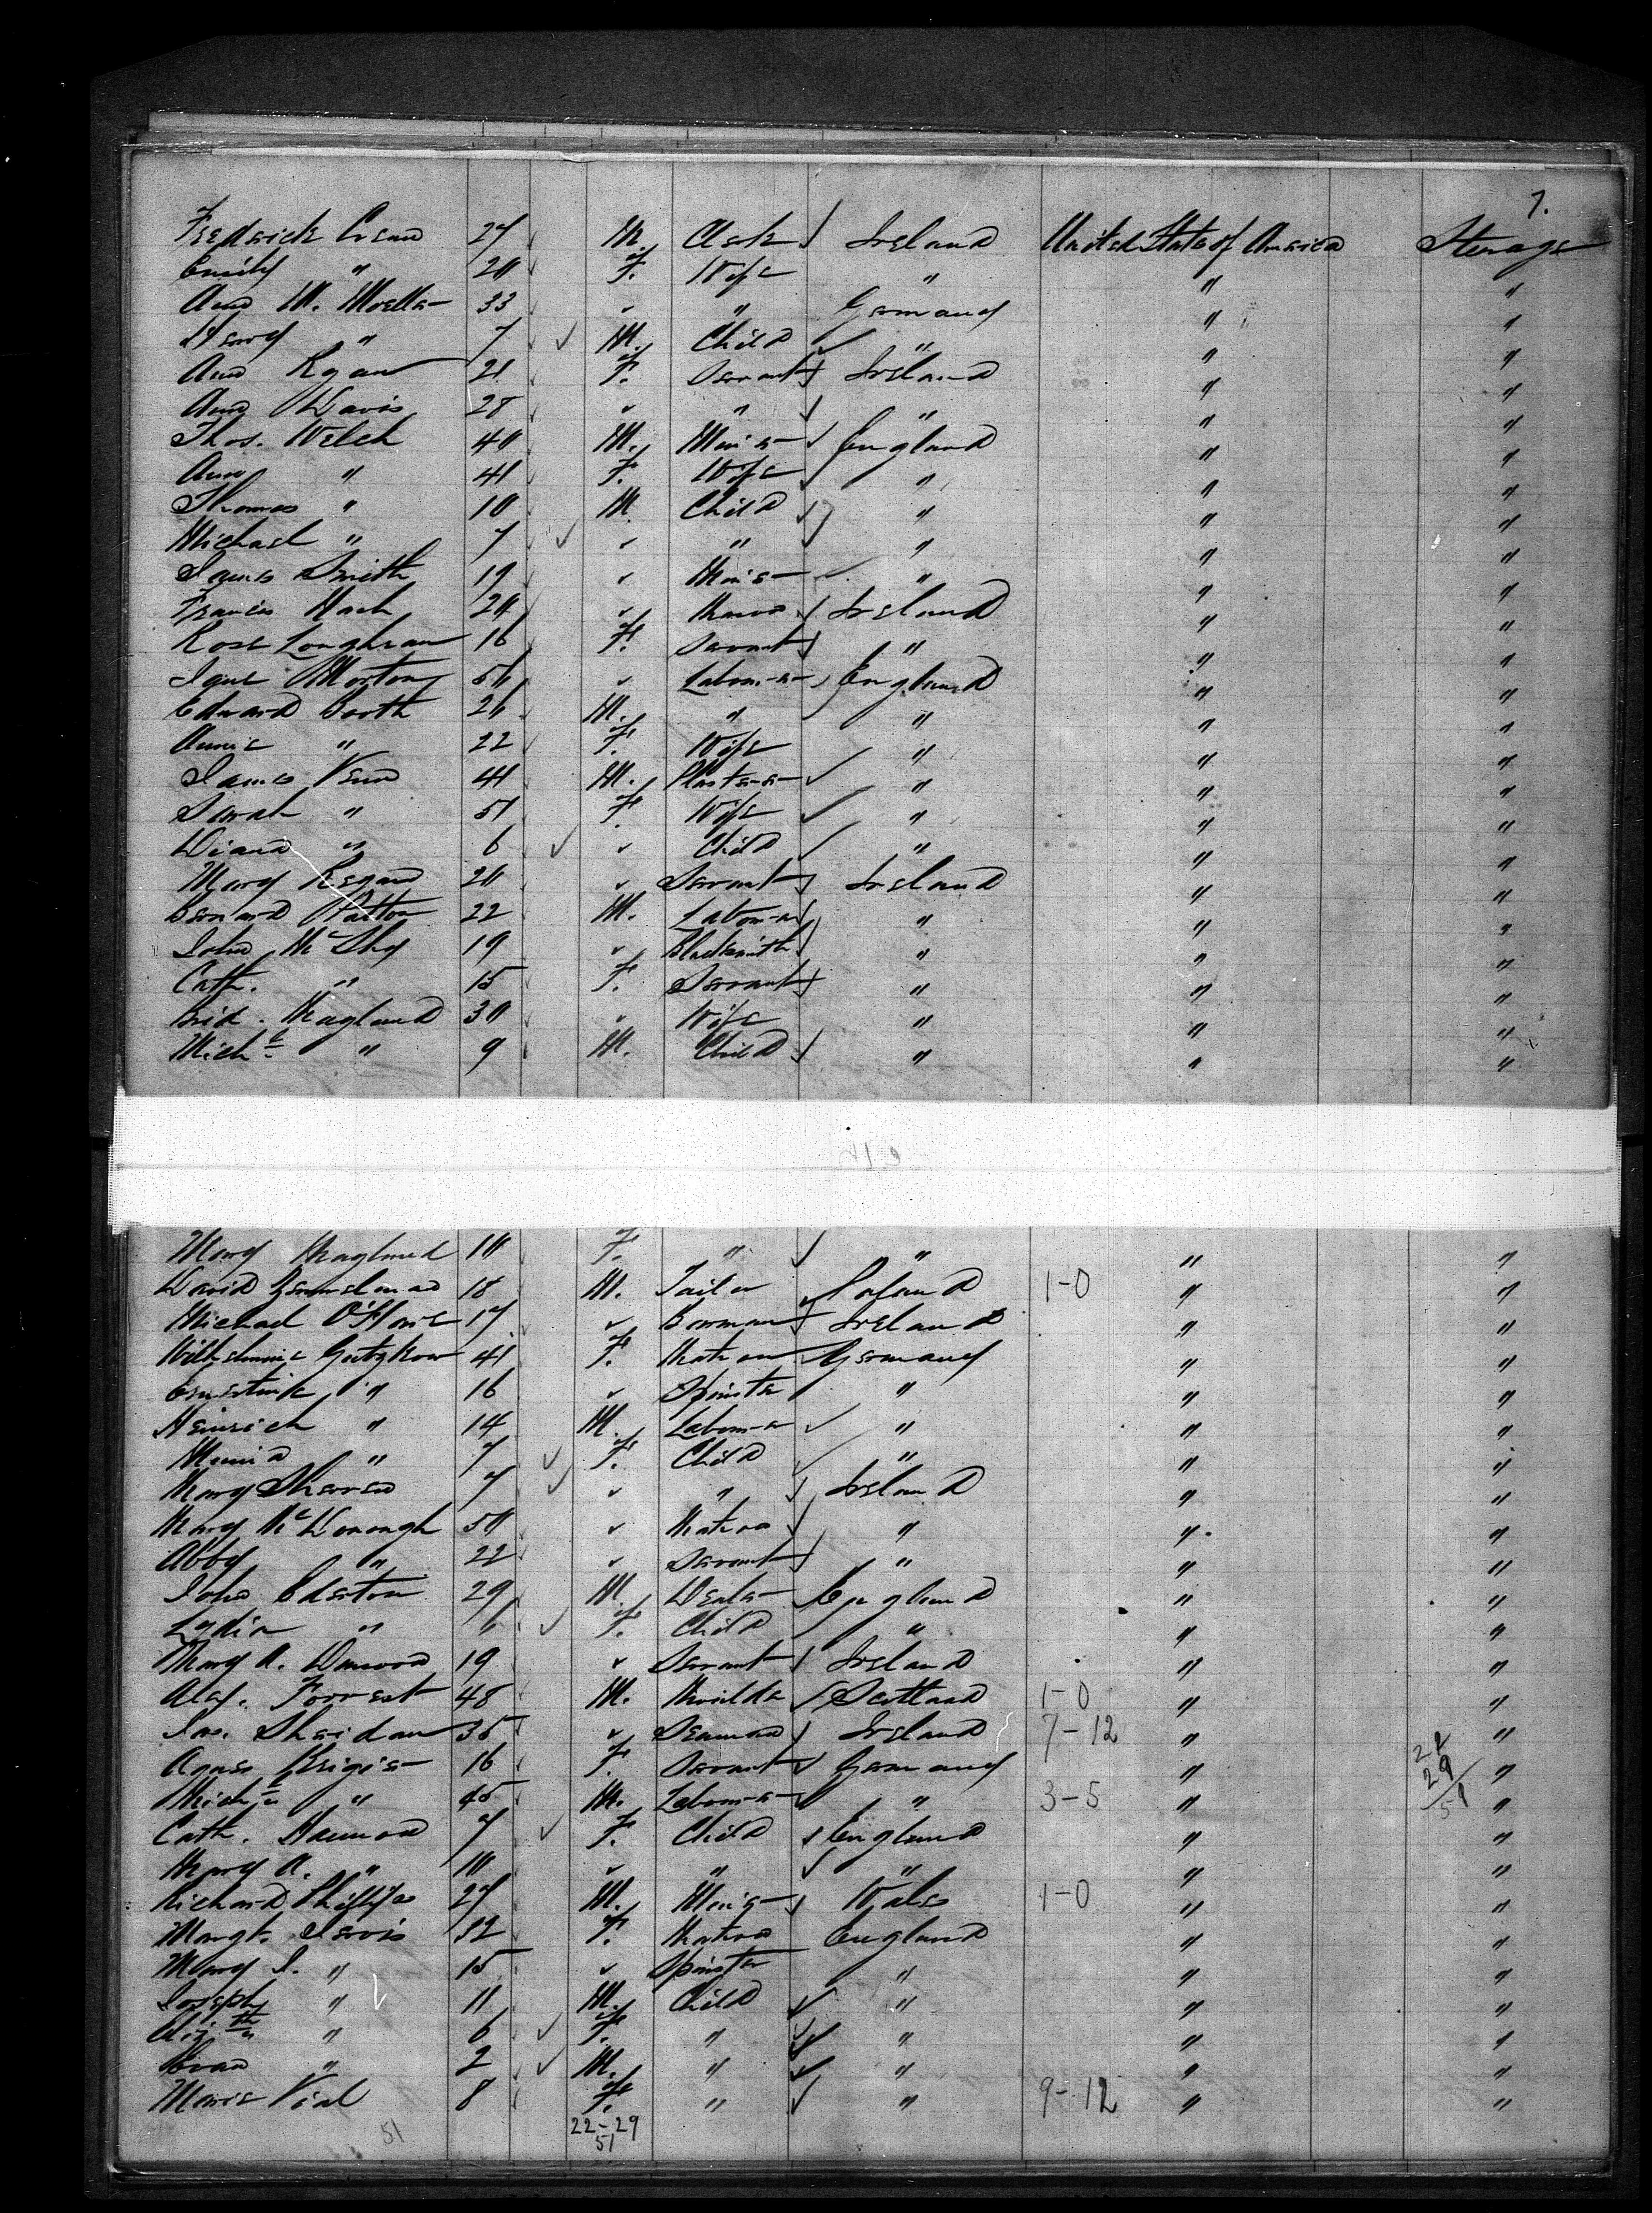 7.
Frederick Crean 27 M. Clerk Ireland United State of America Steerage
Emily " 20 F. Wife " " "
Ann M. Moeller 33 " " Germany " "
Henry " 7 M. Child " " "
Ann Ryan 21 F. Servant Ireland " "
Ann Davis 28 " " " " "
Thos. Welch 40 M. Miner England " "
Ann " 41 F. Wife " " "
Thomas " 10 M. Child " " "
Michael " 7 " " " " "
James Smith 19 " Miner " " "
Francis " Ireland " "
Rose Loughran 16 F. Servant " " "
Jane Morton " Labourer England " "
Edward Booth 26 M. " " " "
Annie " 22 F. Wife " " "
James Venn 41 M. Plasterer " " "
Sarah " 51 F. Wife " " "
Diana " 6 " Child " " "
Mary Regan 20 " Servant Ireland " "
Bernard Patton 22 M. Labourer " " "
John McShy 19 " Blacksmith " " "
Cath. " 15 F. Servant " " "
Brid. Magland 30 " Wife " " "
Michl " 9 M. Child " " "
Mary Magland 10 F. " " " "
David 18 M. Tailor Poland 1-0 " "
Michael O'Hare 17 " Bowman Ireland " "
Wilhelmine Gutzkow 41 F. Matron Germany " "
Ernestine " 16 " Spinster " " "
Heinrich " 14 M. Labourer " " "
Minna " 7 F. Child " " "
Mary 7 " " Ireland " "
Mary McDonough 50 " Matron " " "
Abby " 22 " Servant " " "
John Ederton 29 M. Dealer England " "
Lydia " 6 F. Child " " "
Mary A. 19 " Servant Ireland " "
Alex. Forrest 48 M. Moulder Scotland 1-0 " "
Jas. Sheridan 35 " Seaman Ireland 7-12 " "
Agnes 16 F. Servant Germany " 22 "
Michl " 45 M. Labourer " 3-5 " 29 51 "
Cath. 7 F. Child England " "
Mary A. " 10 " " " " "
Richard Phillips 27 M. Miner Wales 1-0 " "
Margt. Jervis 32 F. Matron England " "
Mary J. " 15 " Spinster " " "
Joseph " 11 M. Child " " "
Elizth " 6 F. " " " "
Evan " 2 M. " " " "
Marie Vial 8 F. " " 9-12 " "
51 22-29
51